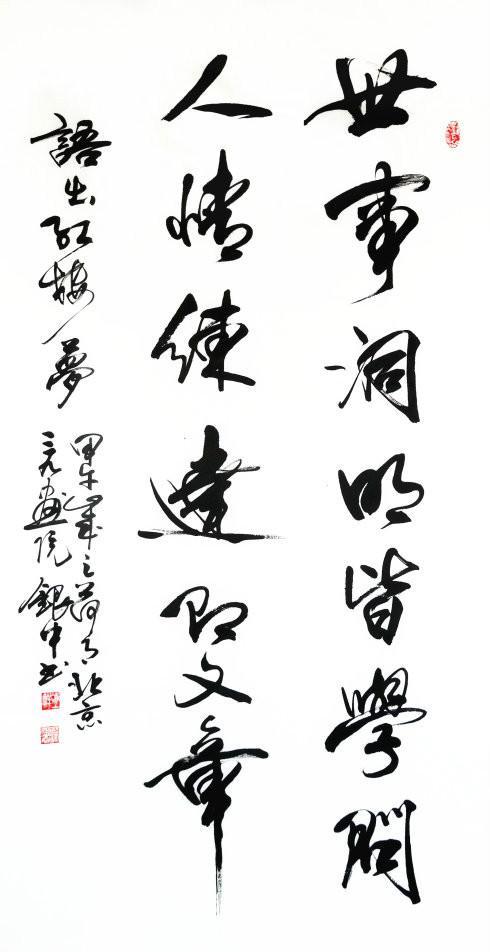 世事洞明皆學問
人情練達即文章
語出紅樓夢
甲午歲之荷月北京
三元畫院銀中書